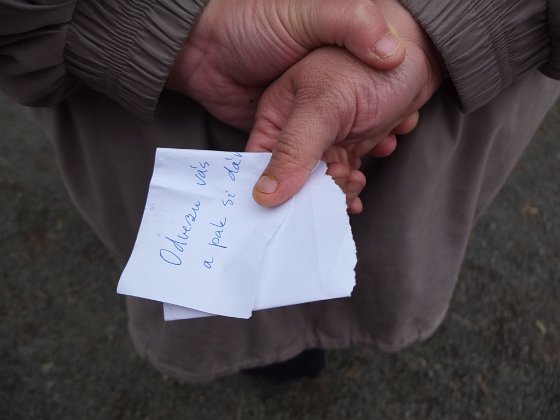 Odvezu vás
a pak si